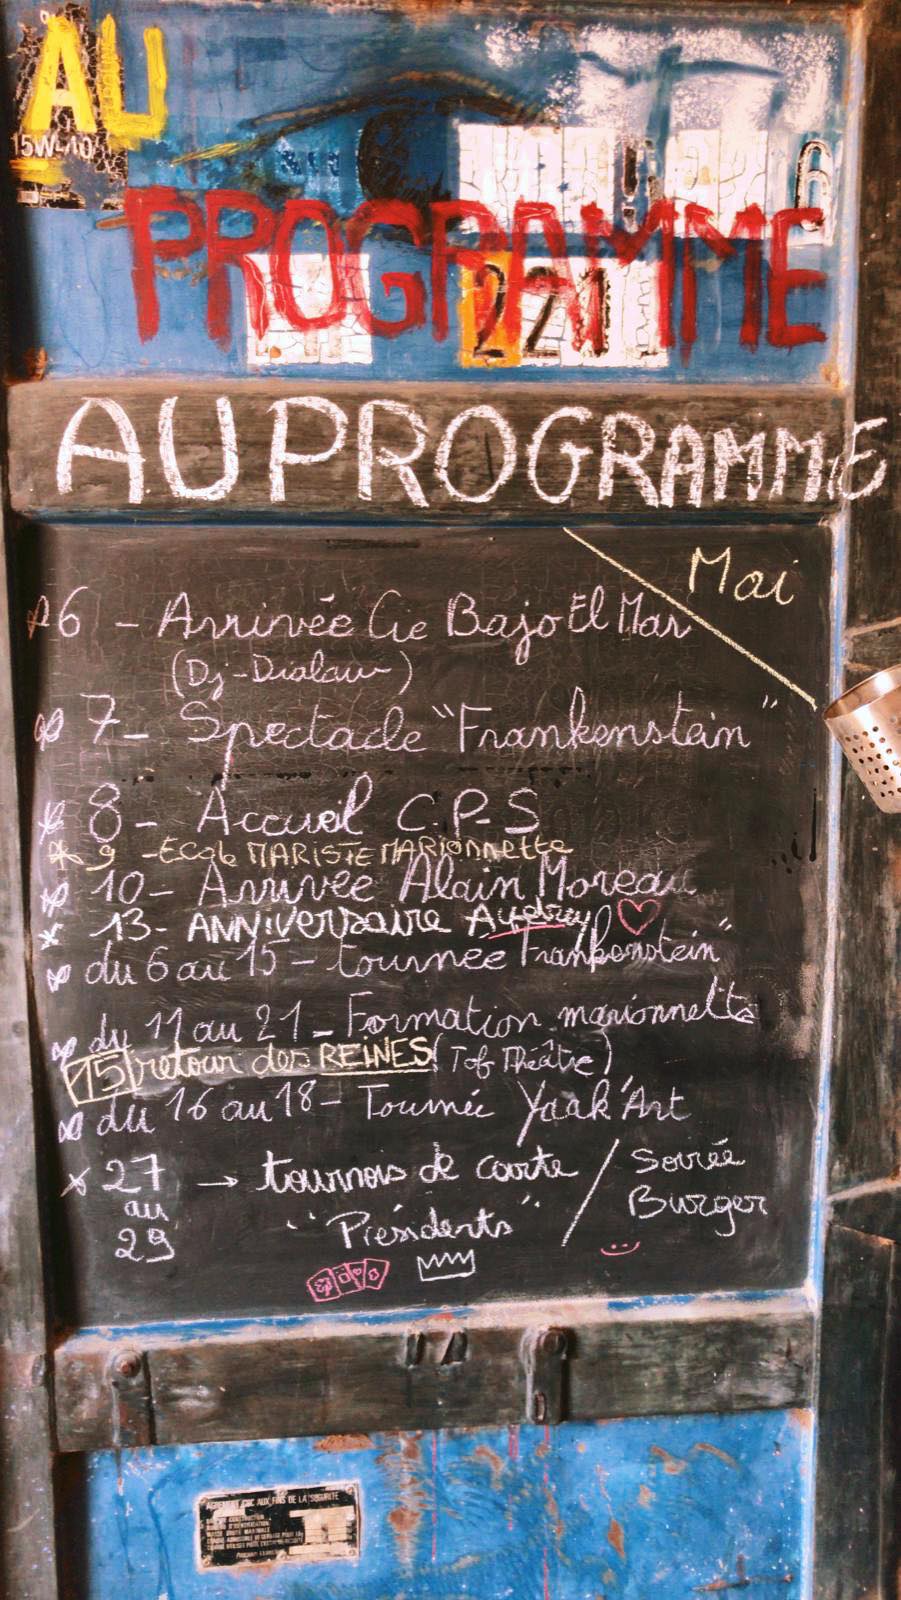 AU
15W-40
PROGRAMME
221
AU PROGRAMME
Mai
6 - Arrivée Cie Bajo El Mar
(Dj-Dialaw)
7 - Spectacle "Frankenstein"
8 - Accueil C.P.S
9 - Ecole MARISTE MARIONNETTE
10 - Arrivée Alain Moreau
13 - ANNIVERSAIRE Audrey
du 6 au 15 - tournée Frankenstein"
du 11 au 21 - Formation marionnette
15 retour des REINES (Tof Théâtre)
du 16 au 18 - Tournée Yaak'Art
27 au 29 → tournois de carte "Présidents" / Soirée Burger
AGREMENT CSC AUX FINS DE LA SECURITE